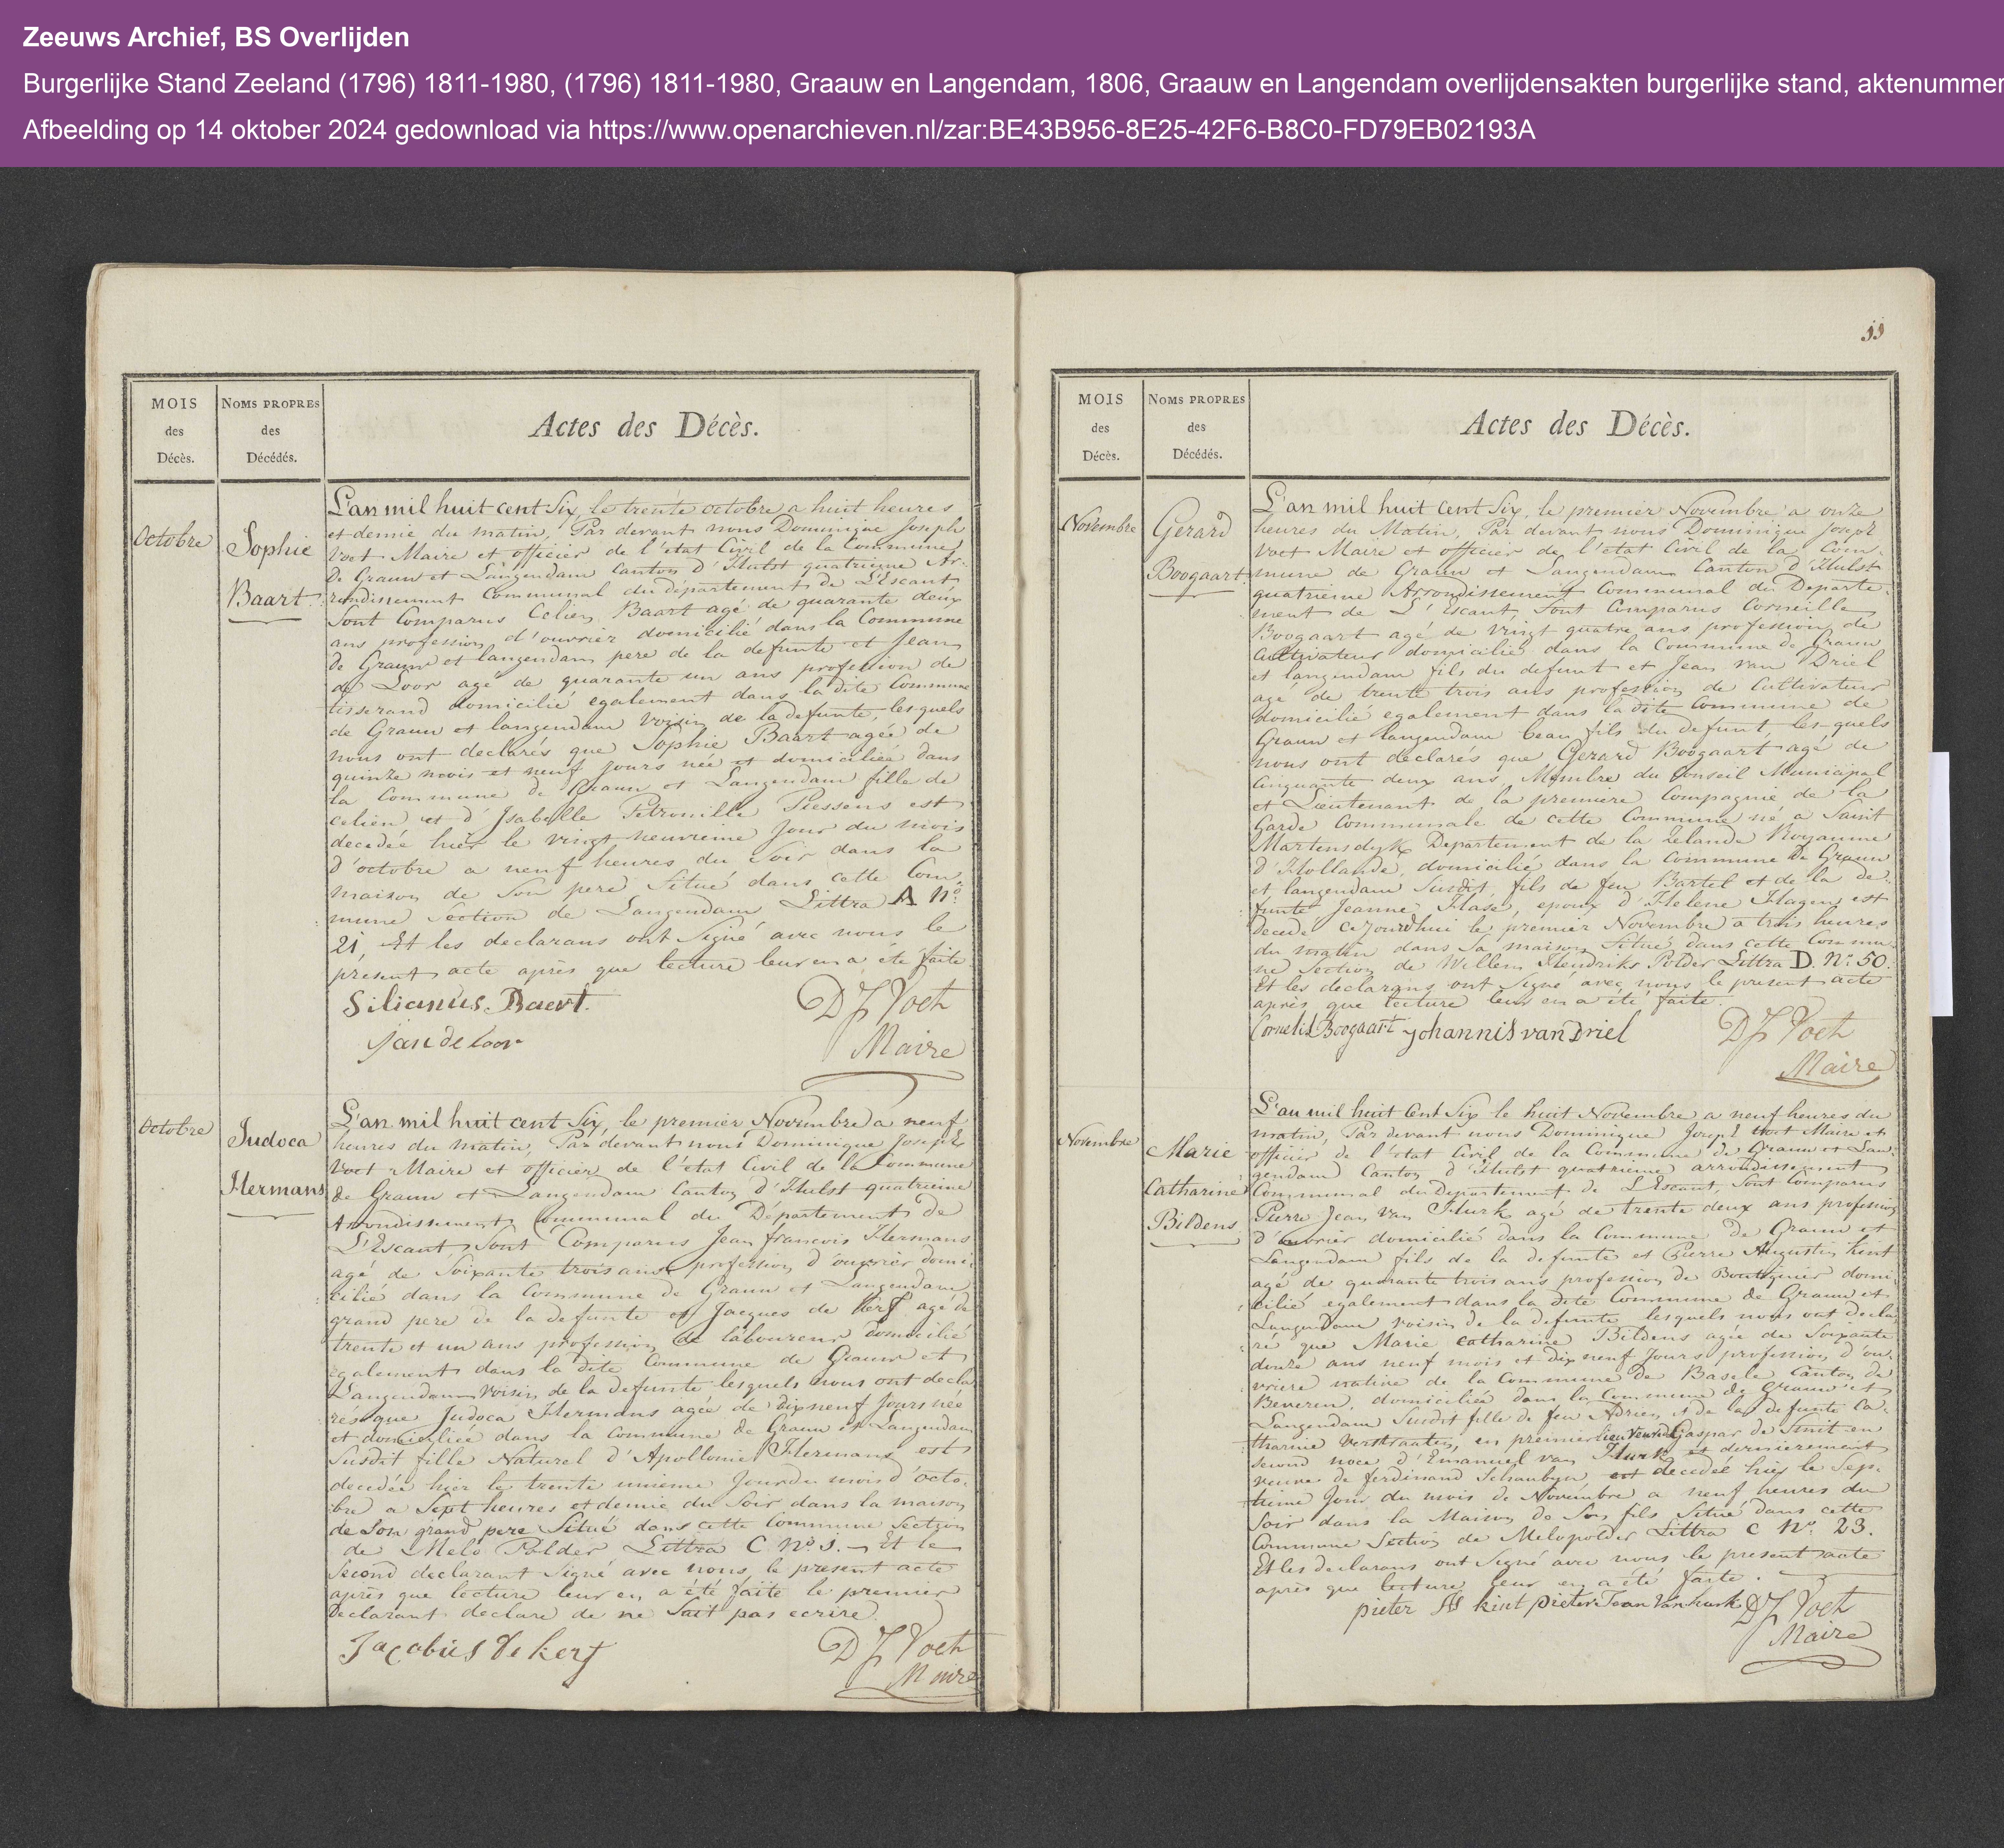 Zeeuws Archief, BS Overlijden
Burgerlijke Stand Zeeland (1796) 1811-1980, (1796) 1811-1980, Graauw en Langendam, 1806, Graauw en Langendam overlijdensakten burgerlijke stand, aktenummer
Afbeelding op 14 oktober 2024 gedownload via https://www.openarchieven.nl/zar:BE43B956-8E25-42F6-B8C0-FD79EB02193A
MOIS
des
Décès.
NOMS PROPRES
des
Décédés.
Actes des Décès.
Octobre
Sophie
Baart
L'an mil huit cent Six, le trente octobre a huit heures
et demie du matin, Par devant nous Dominique Joseph
Voet Maire et officier de l'etat Civil de la Commune
De Graauw et Langendam Canton d'Hulst quatrieme Ar-
rondissement Communal du département de L'Escaut
Sont Comparus Celien Baart agé de quarante deux
ans profession d'ouvrier domicilié dans la Commune
de Graauw et langendam pere de la defunte et Jean
de Loor agé de quarante un ans profession de
tisserand domicilié egalement dans la dite Commune
de Graauw et langendam Voisin de la defunte, lesquels
nous ont declarés que Sophie Baart agée de
quinze mois et neuf jours née et domiciliée dans
la Commune de Graauw et Langendam fille de
celien et d'Isabelle Petronille Piessens est
decedée hier le vingt neuvieme Jour du mois
d'octobre a neuf heures du Soir dans la
maison de Son pere Situé dans cette Com-
mune Section de Langendam Littra A N°
21, Et les declarans ont Signé avec nous le
present acte après que lecture leur en a été faite
Silianus. Baert.
jan de loor
DJ Voet
Maire
Octobre
Judoca
Hermans
L'an mil huit cent Six, le premier Novembre a neuf
heures du matin, Par devant nous Dominique Joseph
Voet Maire et officier de l'etat Civil de la Commune
de Graauw et Langendam Canton d'Hulst quatrieme
Arrondissement Communal du Département de
L'Escaut, Sont Comparus Jean francois Hermans
agé de Soixante trois ans profession d'ouvrier domi-
cilié dans la Commune de Graauw et Langendam
grand pere de la defunte et Jacques de Kerf agé de
trente et un ans profession de laboureur domicilié
egalement dans la dite Commune de Graauw et
Langendam Voisin de la defunte lesquels nous ont decla-
rés que Judoca Hermans agée de dixneuf Jours née
et domiciliée dans la Commune de Graauw et Langendam
Susdit fille Naturel d'Apollonie Hermans est
decedée hier le trente unieme Jour du mois d'octo-
bre a Sept heures et demie du Soir dans la maison
de Son grand pere Situé dans cette Commune Section
de Melo Polder Littra C N° 3. Et le
Second declarant Signé avec nous le present acte
après que lecture leur en a été faite le premier
Declarant declare de ne Sait pas ecrire.
Jacobus De kerf
DJ Voet
Maire
MOIS
des
Décès.
NOMS PROPRES
des
Décédés.
Actes des Décès.
Novembre
Gerard
Boogaart
L'an mil huit Cent Six, le premier Novembre a onze
heures du Matin, Par devant nous Dominique Joseph
Voet Maire et officier de l'etat Civil de la Com-
mune de Graauw et Langendam Canton d'Hulst
quatrieme Arrondissement Communal du Departe-
ment de L'Escaut, Sont Comparus Corneille
Boogaart agé de Vingt quatre ans profession de
Cultivateur domicilié dans la Commune de Graauw
et langendam fils du defunt et Jean van Driel
agé de trente trois ans profession de Cultivateur
domicilié egalement dans la dite Commune de
Graauw et langendam beau fils du defunt, les-quels
nous ont declarés que Gerard Boogaart agé de
Cinquante deux ans, Membre du Conseil Municipal
et Lieutenant de la premiere Compagnie de la
Garde Communale de cette Commune né a Saint
Martensdyk Departement de la Zelande Royaume
d'Hollande, domicilié dans la Commune De Graauw
et langendam Susdit, fils de feu Bartel et de la de-
funte Jeanne Hase, epoux d'Helene Hagen est
decede cejourdhui le premier Novembre a trois heures
du matin dans Sa maison Situé dans cette Commu-
ne Section de Willem Hendriks Polder Littra D. N° 50.
Et les declarans ont Signé avec nous le present acte
après que lecture leur en a été faite.
Cornelis Boogaart johannis van Driel
DJ Voet
Maire
Novembre
Marie
Catharine
Bildens
L'an mil huit Cent Six le huit Novembre a neuf heures du
matin, Par devant nous Dominique Joseph Voet Maire et
officier de l'etat Civil de la Commune de Graauw et Lan-
gendam Canton d'Hulst quatrieme arrondissement
Communal du Departement de L'Escaut, Sont Comparus
Pierre Jean Van Hurk agé de trente deux ans profession
d'ouvrier domicilié dans la Commune de Graauw et
Langendam fils de la defunte et Pierre Augustin Kint
agé de quarante trois ans profession de Boutiquier domi-
cilié egalement dans la dite Commune de Graauw et
Langendam voisin de la defunte lesquels nous ont decla-
ré que Marie Catharine Bildens agée de Soixante
douze ans neuf mois et dix neuf Jours profession d'ou-
vriere native de la Commune de Basele Canton de
Beveren, domiciliée dans la Commune de Graauw et
Langendam Susdit fille de feu Adrien et de la defunte Ca-
tharine Verstraaten, en premier lieu Veuve de Gaspar de Smit en
Second noce d'Emanuel van Hurk et dernierement
veuve de ferdinand Schaubyn est decedée hier le Sep-
tieme Jour du mois de Novembre a neuf heures du
Soir dans la Maison de Son fils Situé dans cette
Commune Section de Melopolder Littra C N° 23.
Et les declarans ont Signé avec nous le present acte
après que lecture leur en a été faite.
pieter kint pieter Joan Van hurk DJ Voet
Maire